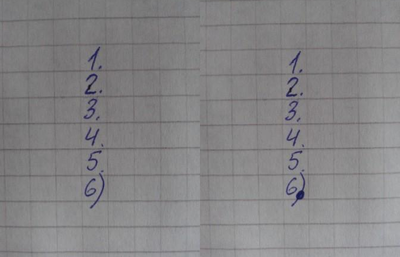 1.
2.
3.
4.
5.
6)
1.
2.
3.
4.
5.
6)